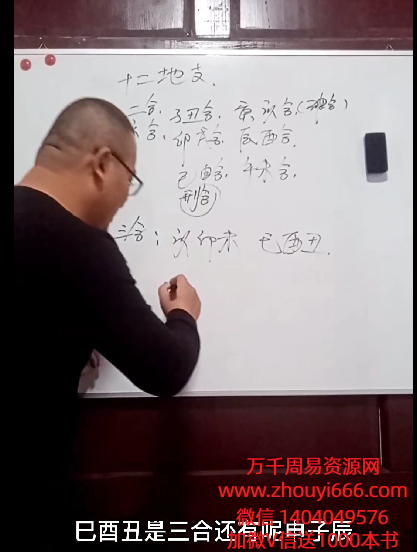 十二地支.
二合, 子丑合, 寅亥合(破合)
六合, 卯戌合, 辰酉合,
巳申合, 午未合,
刑合
三合: 亥卯未 巳酉丑.
万千周易资源网
www.zhouyi666.com
微信 1404049576
加微V信送1000本书
巳酉丑是三合还有呢申子辰